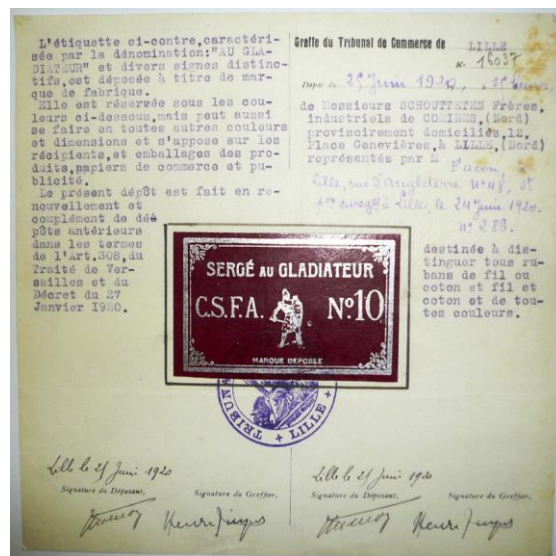 L'étiquette ci-contre,caractéri-
sée par la dénomination:"AU GLA-
DIATEUR" et divers signes distinc-
tifs,est déposée à titre de mar-
que de fabrique.
Elle est réservée sous les cou-
leurs ci-dessous,mais peut aussi
se faire en toutes autres couleurs
et dimensions et s'appose sur les
récipients,et emballages des pro-
duits,papiers de commerce et pu-
blicité.
Le présent dépôt est fait en re-
nouvellement et
complément de dé
pôts antérieurs
dans les termes
de l'Art.308,du
Traité de Ver-
sailles et du
Décret du 27
Janvier 1920.
Greffe du Tribunal de Commerce de LILLE
N° 16037
Dépôt du 25 Juin 1920,
de Messieurs SCHOUTTETEN Frères,
industriels de COMINES,(Nord)
provisoirement domiciliés,12,
Place Genevières,à LILLE,(Nord)
représentés par M
Facon, à
Lille, rue d'Angleterre n° 48,
à Lille, le 24 Juin 1920.
n° 286.
destinée à dis-
tinguer tous ru-
bans de fil ou
coton et fil et
coton et de tou-
tes couleurs.
SERGÉ AU GLADIATEUR
C.S.F.A. N°10
MARQUE DEPOSEE
TRIBUN + LILLE +
Lille le 25 Juin 1920
Signature du Déposant, Signature du Greffier,
Lille le 25 Juin 1920
Signature du Déposant, Signature du Greffier,